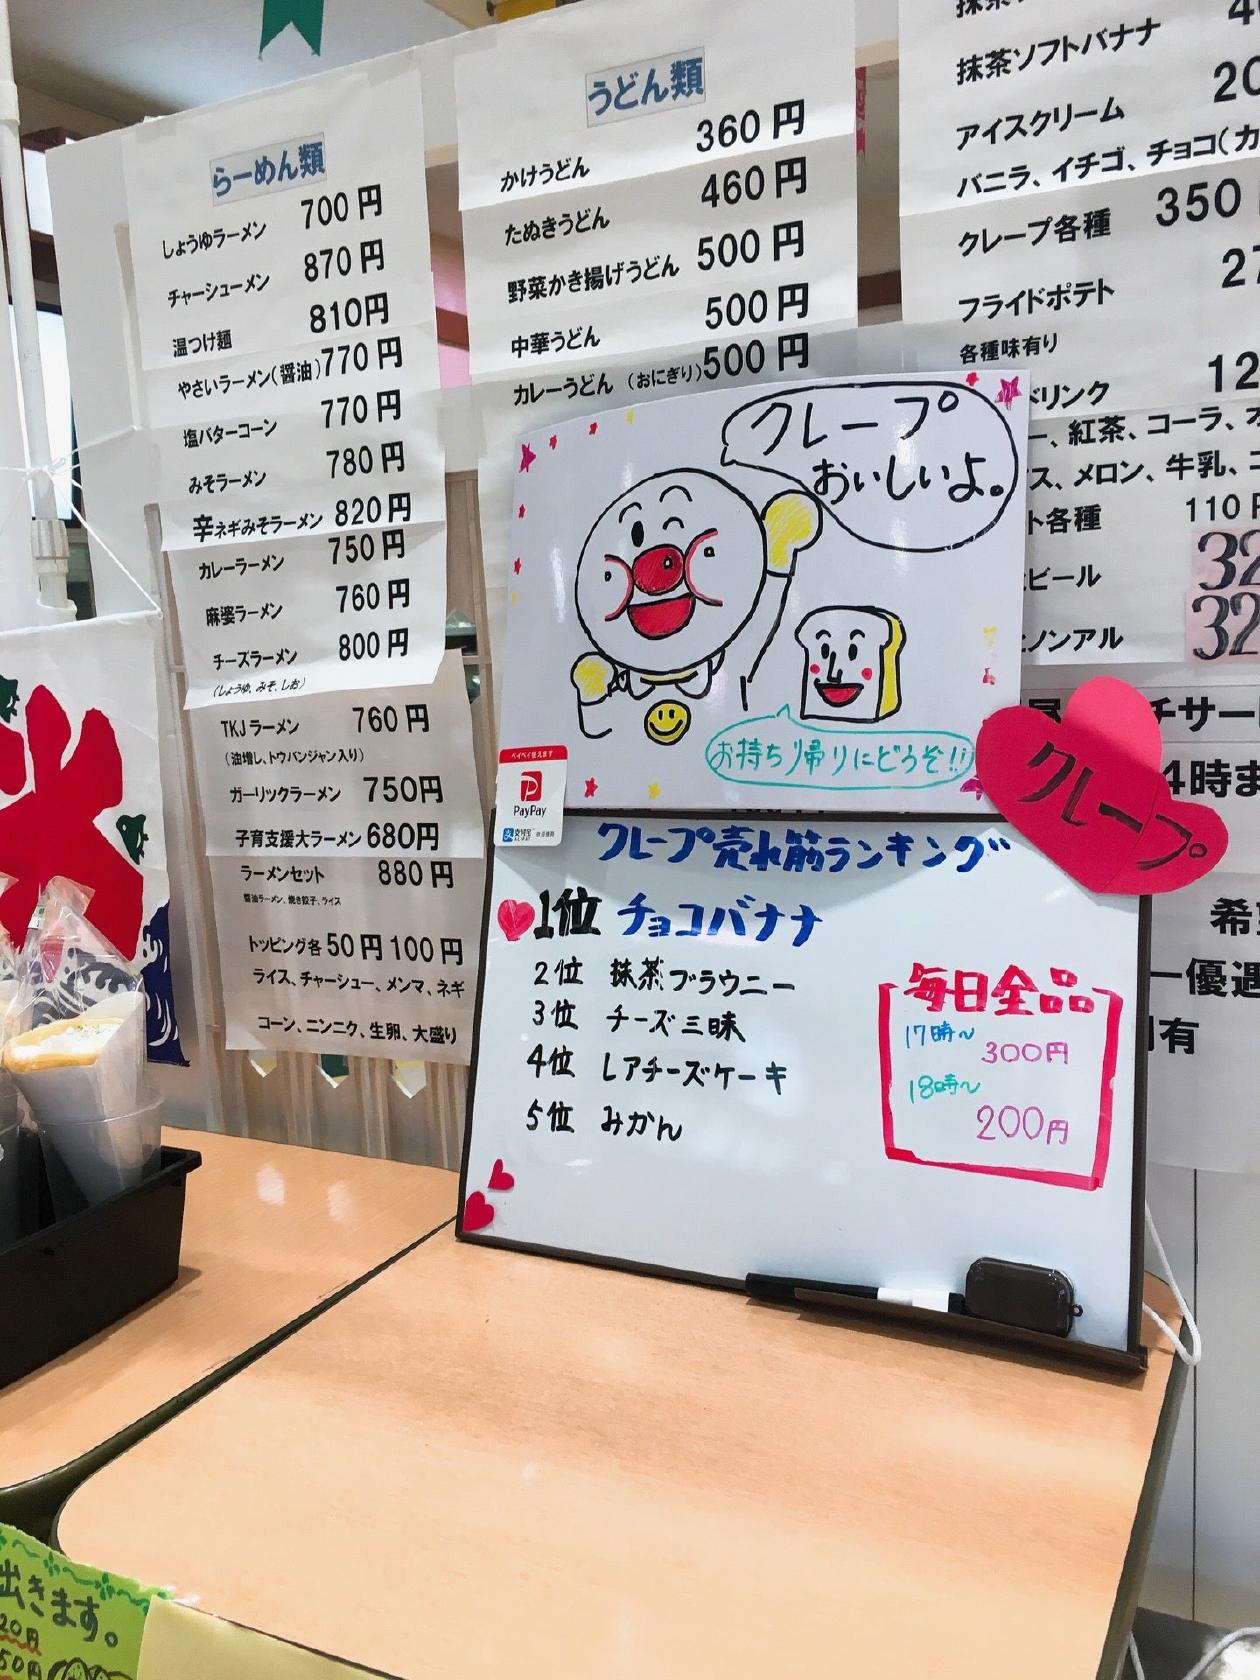 らーめん類
しょうゆラーメン 700円
チャーシューメン 870円
温つけ麺 810円
やさいラーメン(醤油) 770円
塩バターコーン 770円
みそラーメン 780円
辛ネギみそラーメン 820円
カレーラーメン 750円
麻婆ラーメン 760円
チーズラーメン 800円
(しょうゆ、みそ、しお)
TKJラーメン 760円
(油増し、トウバンジャン入り)
ガーリックラーメン 750円
子育支援大ラーメン 680円
ラーメンセット 880円
醤油ラーメン、焼き餃子、ライス
トッピング各 50円 100円
ライス、チャーシュー、メンマ、ネギ
コーン、ニンニク、生卵、大盛り
うどん類
かけうどん 360円
たぬきうどん 460円
野菜かき揚げうどん 500円
中華うどん 500円
カレーうどん (おにぎり) 500円
抹茶ソフトバナナ
アイスクリーム 20
バニラ、イチゴ、チョコ(カ
クレープ各種 350
フライドポテト 27
各種味有り
ドリンク 12
ー、紅茶、コーラ、
ス、メロン、牛乳、コ
ト各種 110
ビール 32
ノンアル 32
チサー
4時ま
希
ー優遇
有
クレープ
おいしいよ。
お持ち帰りにどうぞ!!
ペイペイ使えます
PayPay
クレープ
クレープ売れ筋ランキング
1位 チョコバナナ
2位 抹茶ブラウニー
3位 チーズ三昧
4位 レアチーズケーキ
5位 みかん
毎日全品
17時~
300円
18時~
200円
氷
出きます。
20円
50円